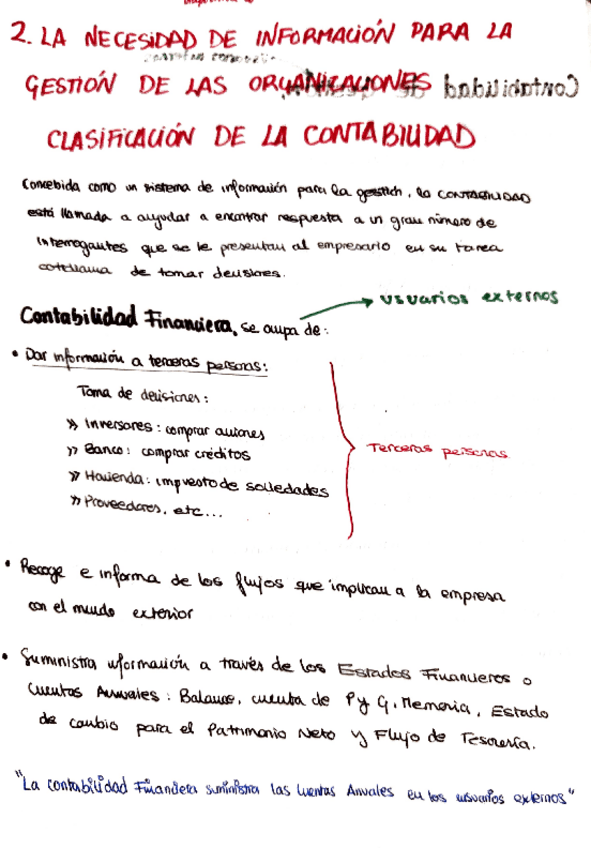 2. LA NECESIDAD DE INFORMACIÓN PARA LA
GESTIÓN DE LAS ORGANIZACIONES
CLASIFICACIÓN DE LA CONTABILIDAD
Concebida como un sistema de información para la gestión, la CONTABILIDAD
está llamada a ayudar a encontrar respuesta a un gran número de
interrogantes que se le presentan al empresario en su tarea
cotidiana de tomar decisiones.
usuarios externos
Contabilidad Financiera, se ocupa de:
• Dar información a terceras personas:
Toma de decisiones:
» Inversores: comprar acciones
» Banco: comprar créditos
» Hacienda: impuesto de sociedades
» Proveedores, etc...
Terceras personas
• Recoge e informa de los flujos que implican a la empresa
con el mundo exterior
• Suministra información a través de los Estados Financieros o
Cuentas Anuales: Balance, cuenta de P y G, Memoria, Estado
de cambio para el Patrimonio Neto y Flujo de Tesorería.
"La contabilidad Financiera suministra las Cuentas Anuales en los usuarios externos"